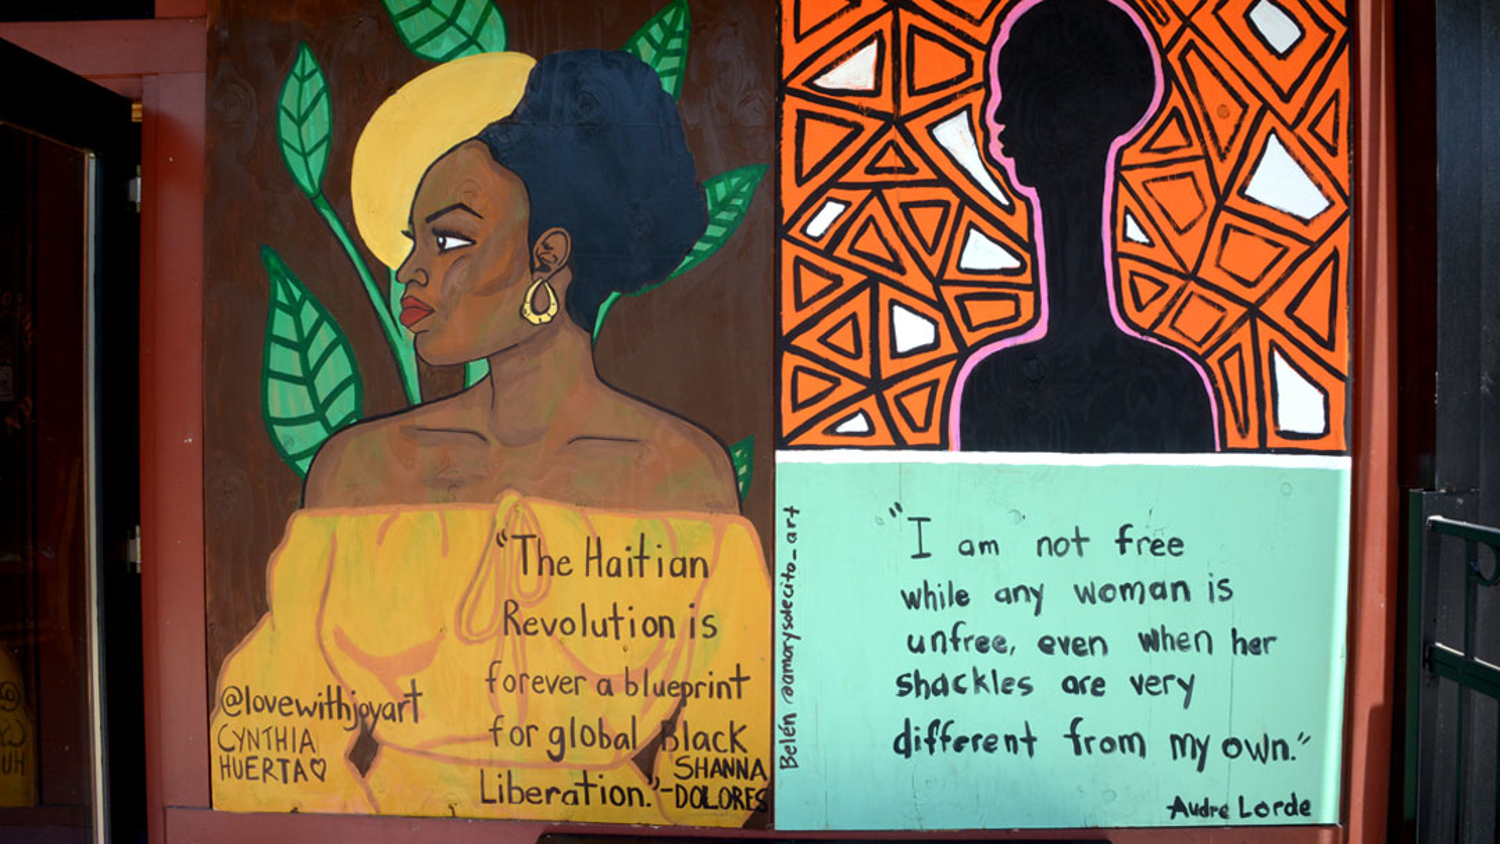 "The Haitian
Revolution is
forever a blueprint
for global Black
Liberation."
-SHANNA
DOLORES
@lovewithjoyart
CYNTHIA
HUERTA♡
Belén @amorysolecito_art
"I am not free
while any woman is
unfree, even when her
shackles are very
different from my own."
Audre Lorde